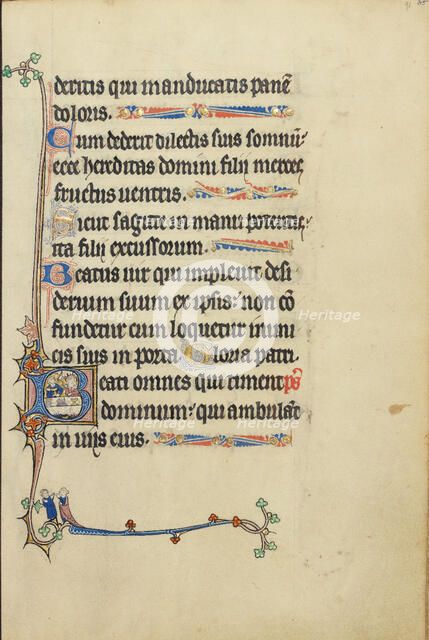 deritis qui manducatis panē
doloris.
Cum dederit dilectis suis somnū:
ecce hereditas domini filii merces
fructus uentris.
Sicut sagitte in manu potentis:
ita filii excussorum.
Beatus uir qui impleuit desi
derium suum ex ipsis: non cō
fundetur cum loquetur inimi
cis suis in porta. Gloria patri.
Beati omnes qui timent ps
dominum: qui ambulāt
in uiis eius.